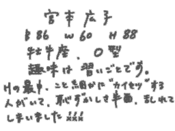 宮本 広子
B86 W60 H88
牡牛座. O型
趣味は 習いごとです。
Hの最中、こと細かに"カイセツ"する
人がいて、恥ずかしき半面、乱れて
しまいました